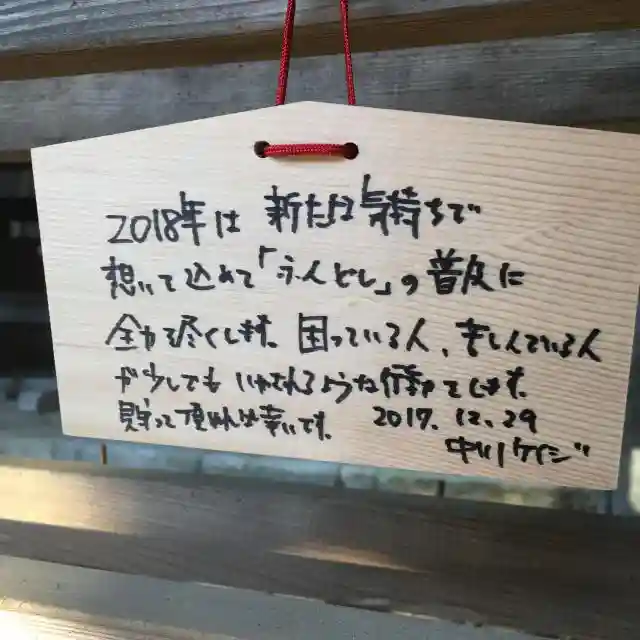 2018年は 新たな気持ちで
想いを込めて「うんとし」の普及に
全力で尽くします。困っている人、苦しんでいる人
が少しでも いやされるような作動をします。
見守って頂ければ幸いです。 2017. 12. 29
中川ケイジ